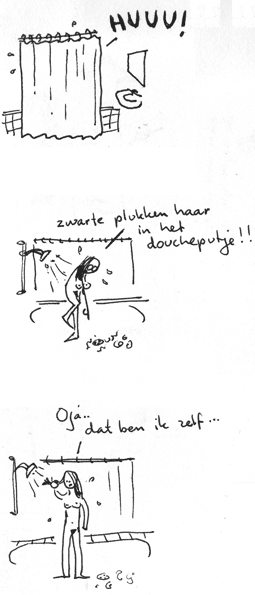 HUUU!
zwarte plukken haar
in het
doucheputje!!
Oja..
dat ben ik zelf...